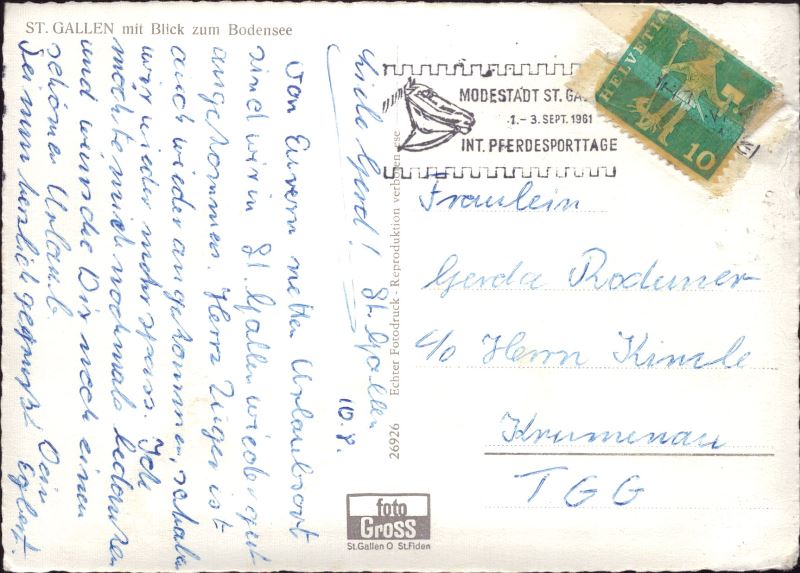 ST. GALLEN mit Blick zum Bodensee
St. Gallen
10.8.
Liebe Gerd!
Von Eurem netten Urlaubsort
sind wir in St. Gallen wieder gut
angekommen. Herr Züger ist
auch wieder angekommen,
wir wieder mehr spass. Ich
möchte mich nochmals bedanken
und wünsche Dir noch einen
schönen Urlaub.
Sei nun herzlich gegrüßt Dein
26926 Echter Fotodruck - Reproduktion verboten
foto
Gross
St.Gallen O St.Fiden
MODESTADT ST. GA
1.- 3. SEPT. 1961
INT. PFERDESPORTTAGE
HELVETIA
10
Fräulein
Gerda Roduner
c/o Herrn Kinzle
Krumenau
TGG